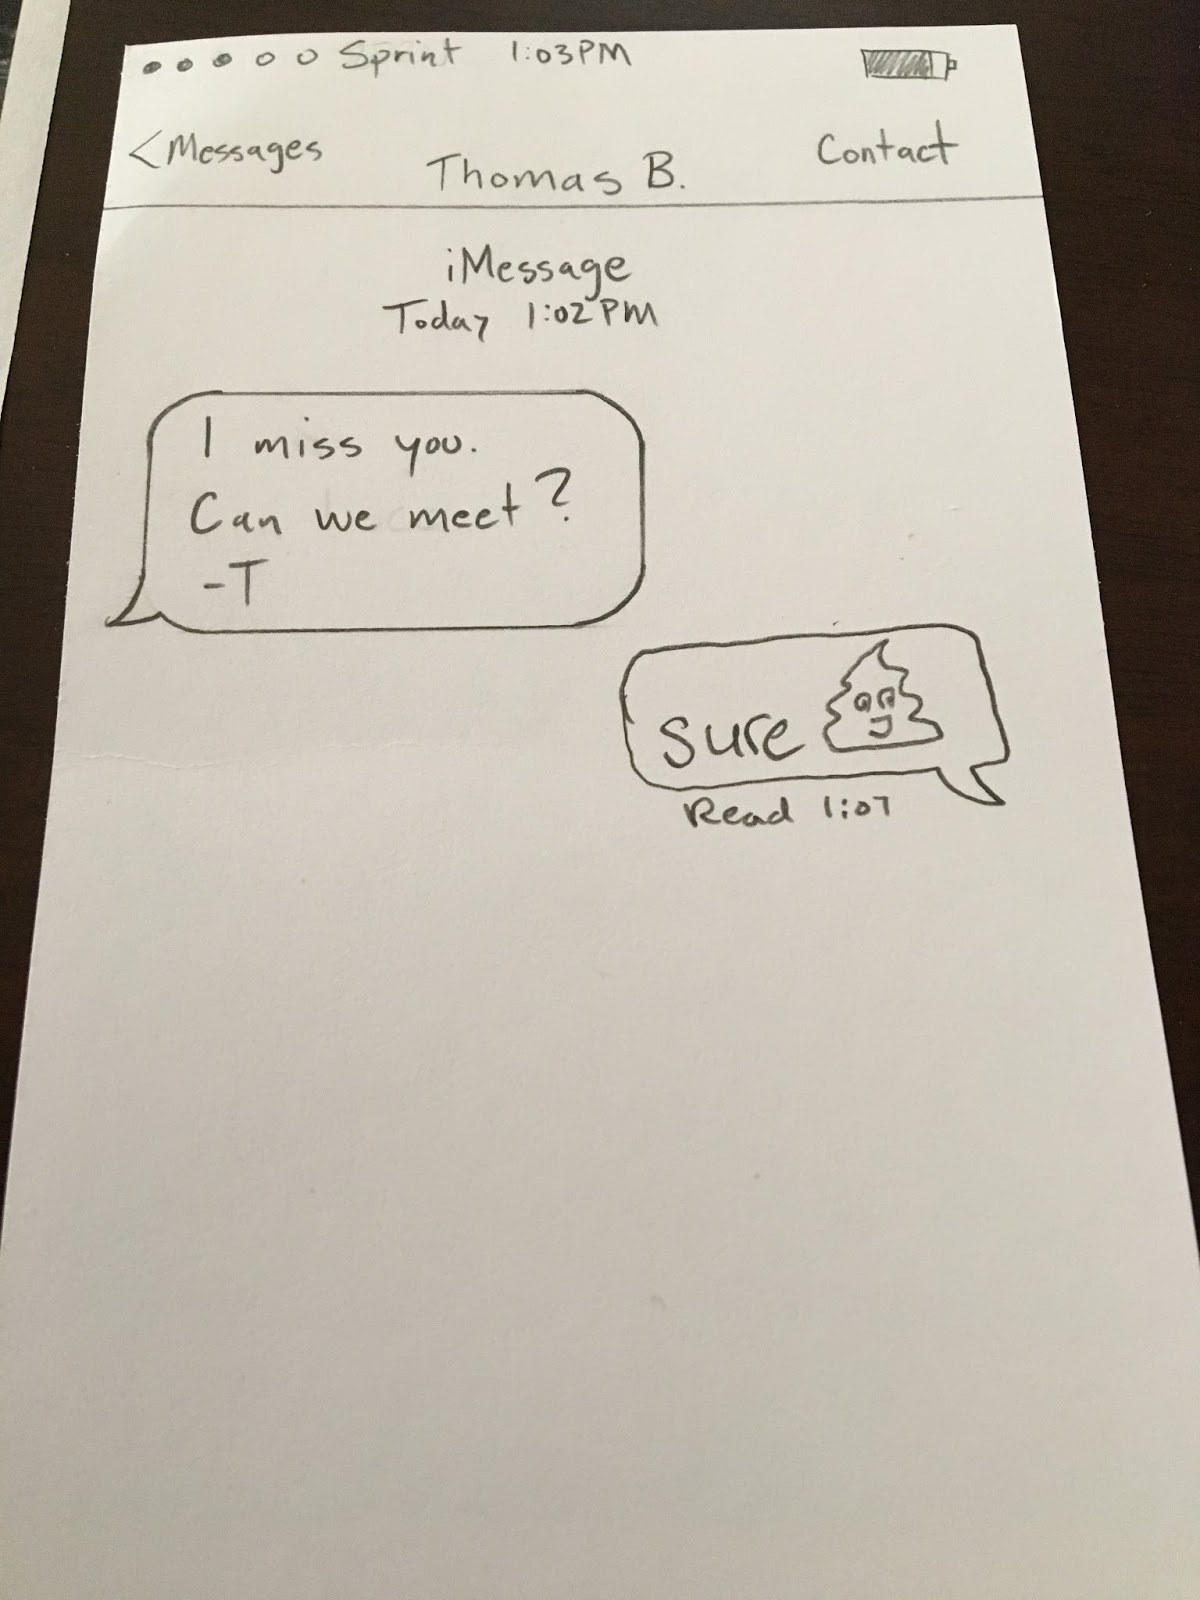 Sprint 1:03PM
<Messages
Thomas B.
Contact
iMessage
Today 1:02PM
I miss you.
Can we meet?
-T
sure
Read 1:07